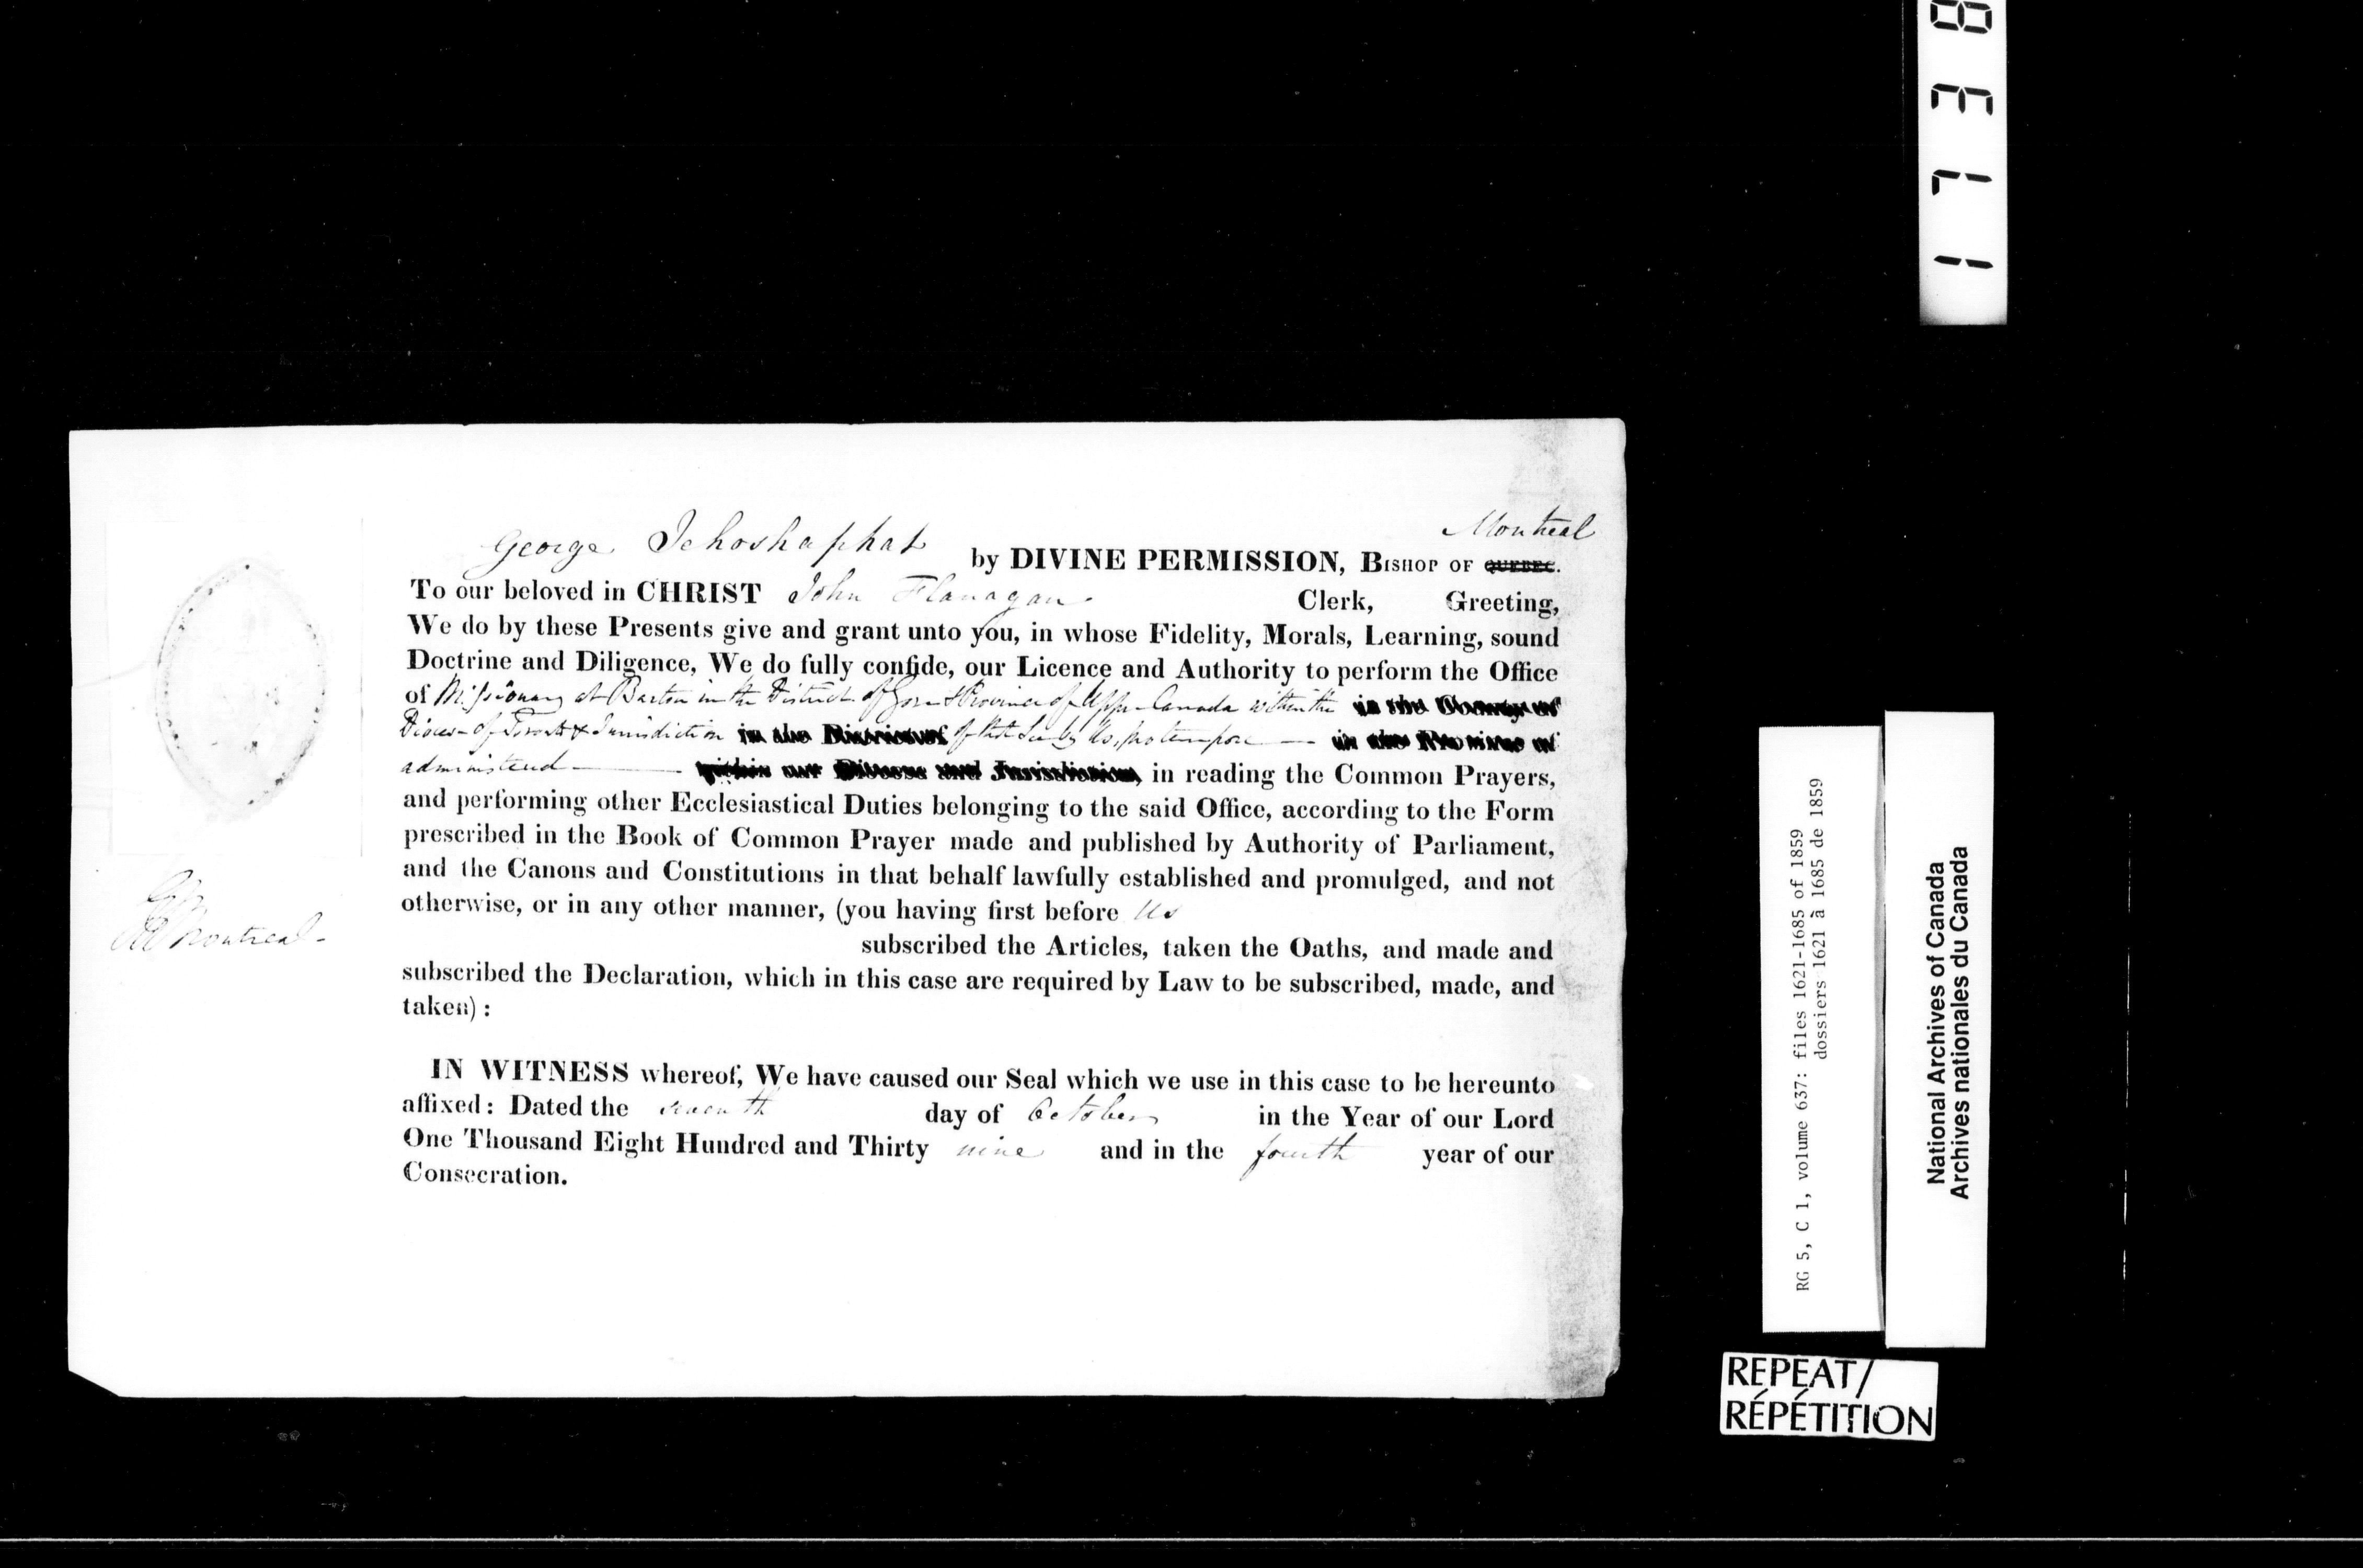 1738
Montreal
George Jehoshaphat by DIVINE PERMISSION, BISHOP OF QUEBEC.
To our beloved in CHRIST John Flanagan Clerk, Greeting,
We do by these Presents give and grant unto you, in whose Fidelity, Morals, Learning, sound
Doctrine and Diligence, We do fully confide, our Licence and Authority to perform the Office
of Missionary at Barton in the District of Gore & Province of Upper Canada within the in the County of
Diocese of Toronto & Jurisdiction in the District of of that See by Us, pro tempore — in the Province of
administered — within our Diocese and Jurisdiction, in reading the Common Prayers,
and performing other Ecclesiastical Duties belonging to the said Office, according to the Form
prescribed in the Book of Common Prayer made and published by Authority of Parliament,
and the Canons and Constitutions in that behalf lawfully established and promulged, and not
otherwise, or in any other manner, (you having first before Us
subscribed the Articles, taken the Oaths, and made and
subscribed the Declaration, which in this case are required by Law to be subscribed, made, and
taken) :
IN WITNESS whereof, We have caused our Seal which we use in this case to be hereunto
affixed: Dated the seventh day of October in the Year of our Lord
One Thousand Eight Hundred and Thirty nine and in the fourth year of our
Consecration.
G. J. Montreal -
RG 5, C 1, volume 637: files 1621-1685 of 1859
dossiers 1621 à 1685 de 1859
National Archives of Canada
Archives nationales du Canada
REPEAT/
RÉPÉTITION